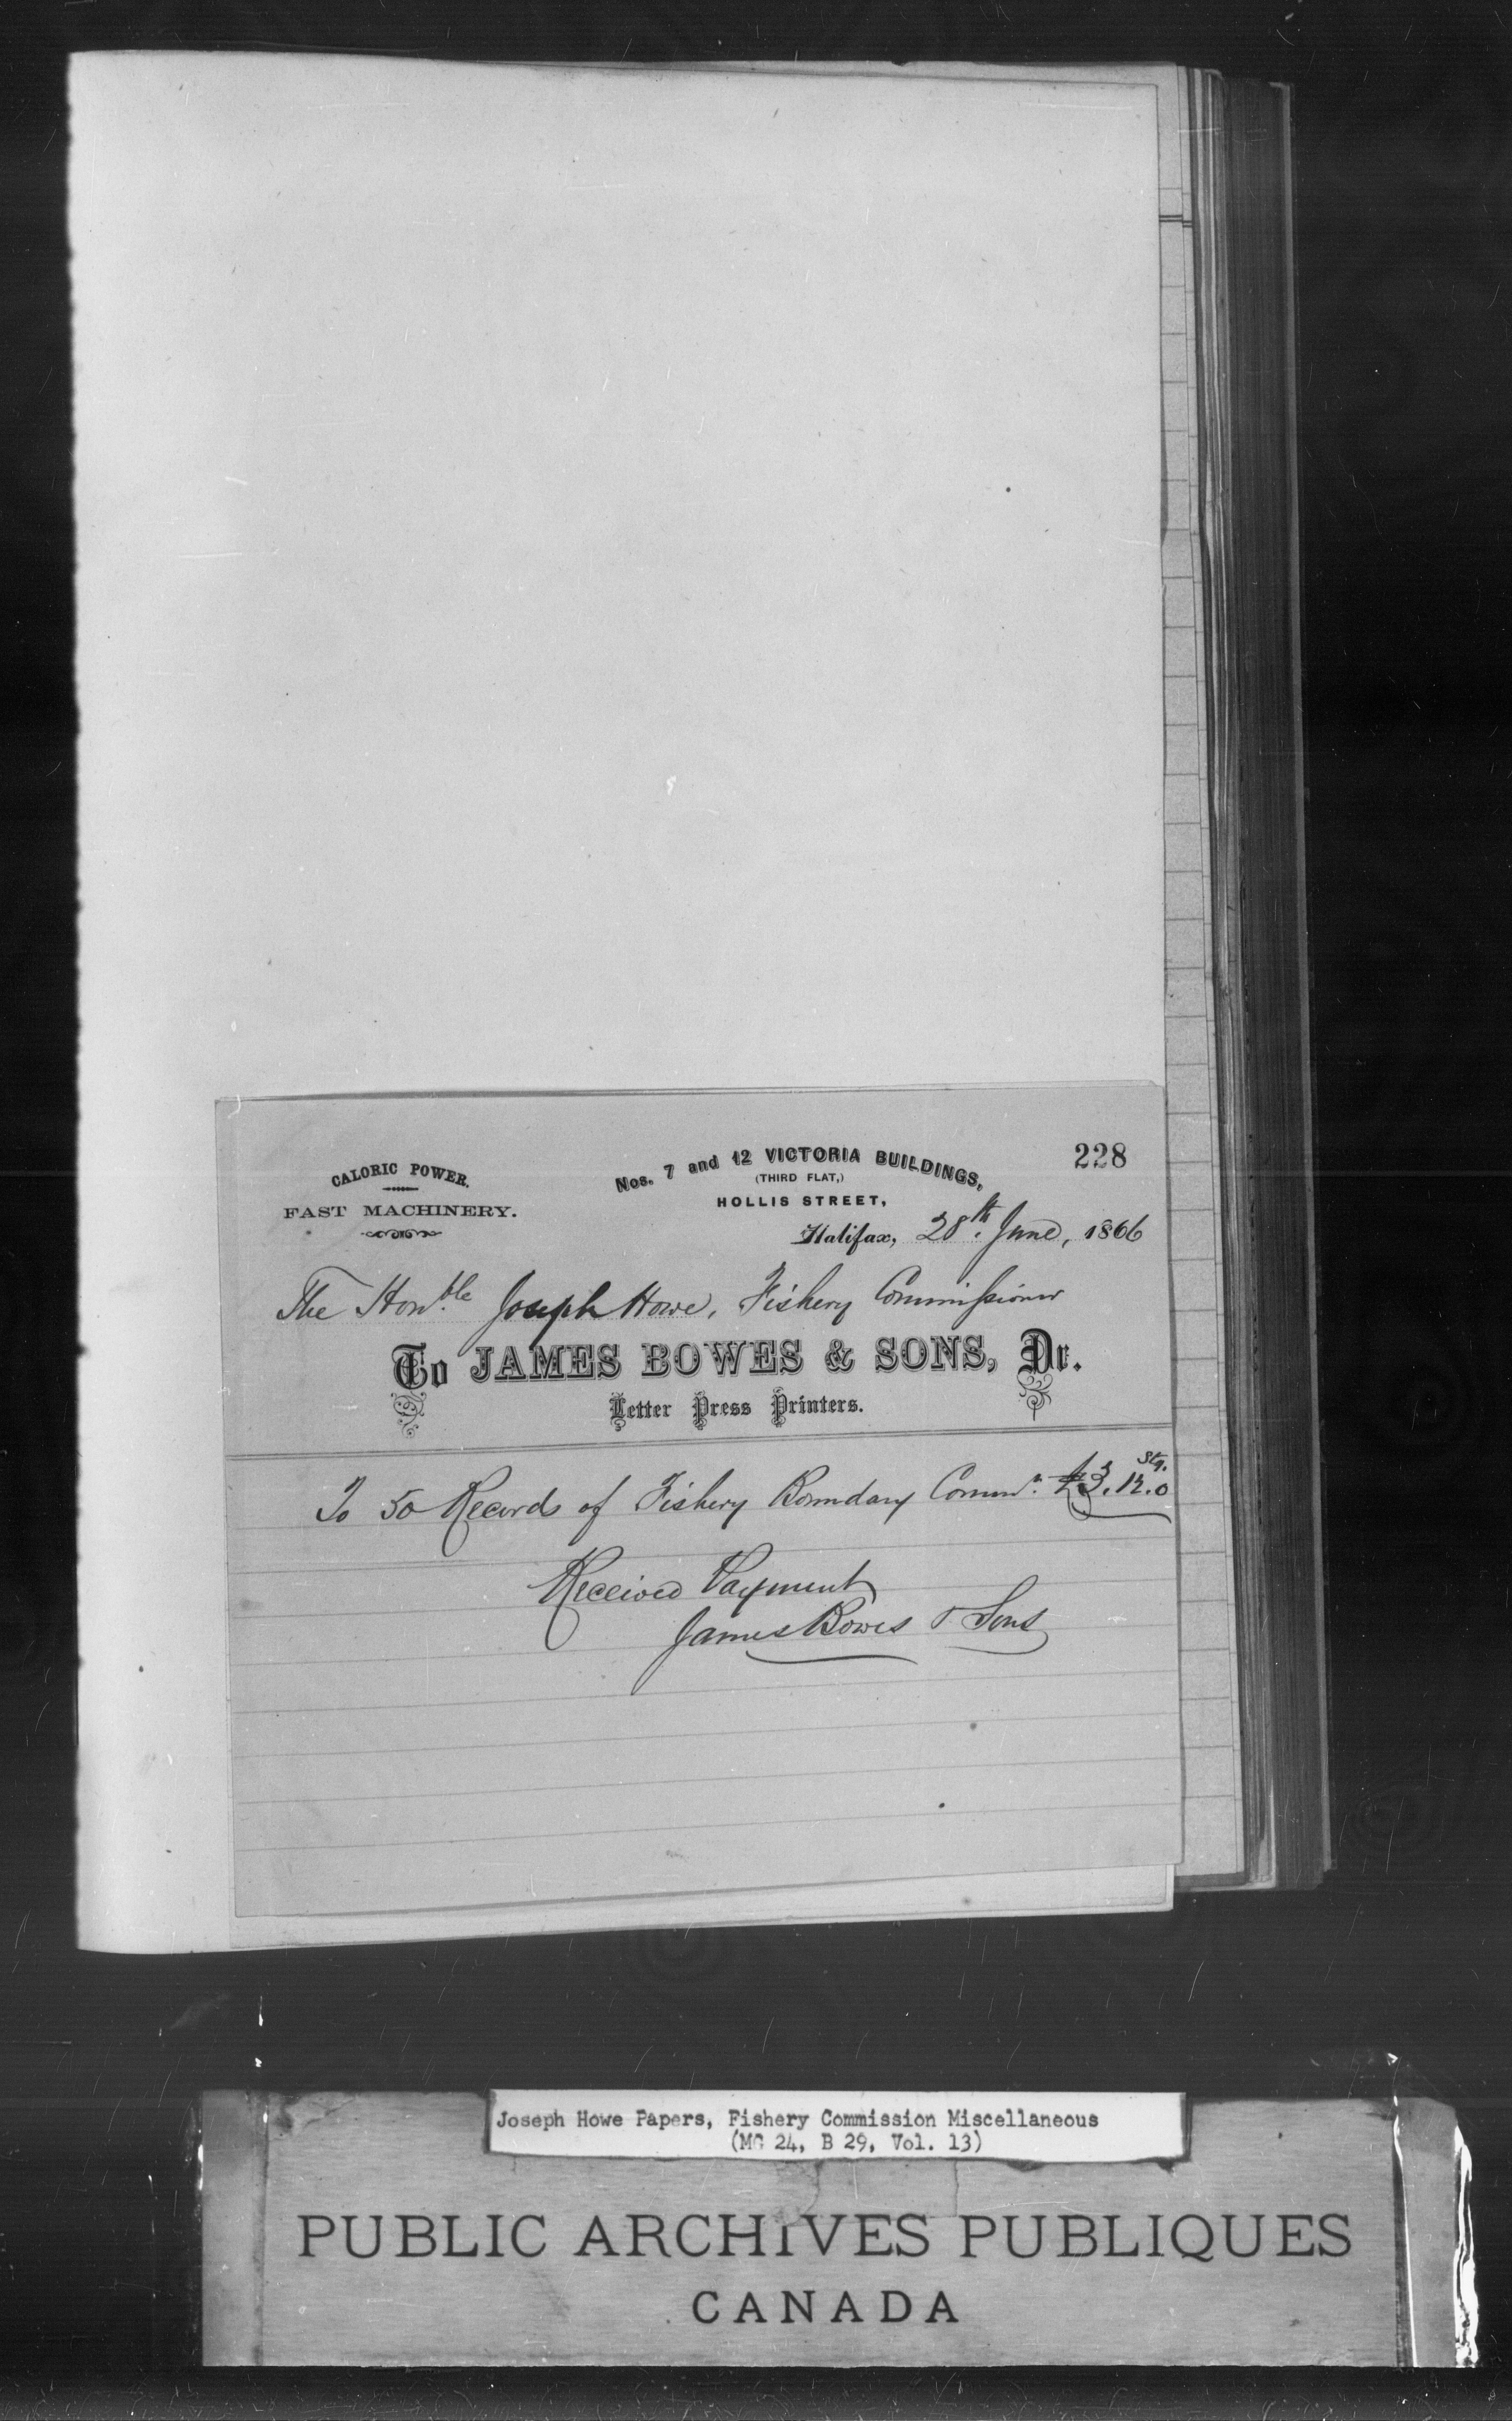 228
CALORIC POWER.
FAST MACHINERY.
Nos. 7 and 12 VICTORIA BUILDINGS,
(THIRD FLAT,)
HOLLIS STREET,
Halifax, 28th June, 1866
The Honble Joseph Howe, Fishery Commissioner
To JAMES BOWES & SONS, Dr.
Letter Press Printers.
To 50 Records of Fishery Boundary Commn. £3.12.0 Stg.
Received Payment
James Bowes & Sons
Joseph Howe Papers, Fishery Commission Miscellaneous
(MG 24, B 29, Vol. 13)
PUBLIC ARCHIVES PUBLIQUES
CANADA